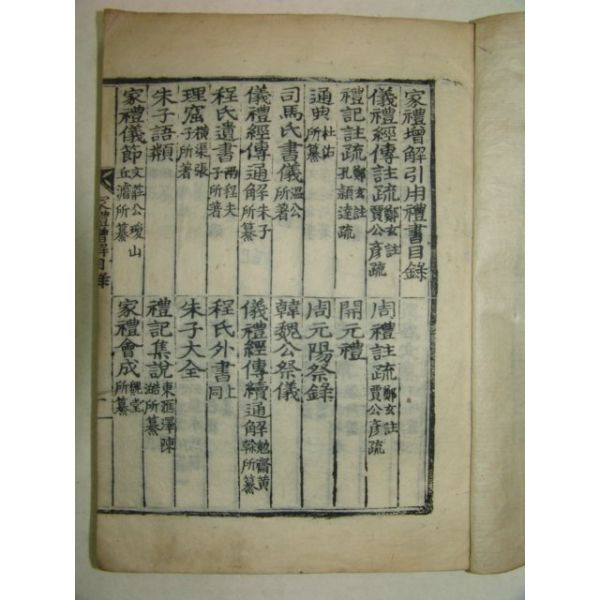 家禮增解引用禮書目錄
儀禮經傳註疏 鄭玄註 賈公彦疏
周禮註疏 鄭玄註 賈公彦疏
禮記註疏 鄭玄註 孔頴達疏
開元禮
通典 杜佑所纂
周元陽祭錄
司馬氏書儀 溫公所著
韓魏公祭儀
儀禮經傳通解 朱子所纂
儀禮經傳續通解 勉齋黃榦所纂
程氏遺書 兩程夫子所著
程氏外書 上同
理窟 橫渠張子所著
朱子大全
朱子語類
禮記集說 東滙澤陳澔所纂
家禮儀節 文莊公瓊山丘濬所纂
家禮會成 魏堂所纂
家禮增解目錄